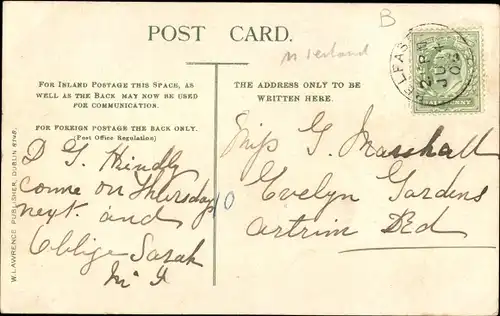 POST CARD.
B
N Ireland
FOR INLAND POSTAGE THIS SPACE, AS
WELL AS THE BACK MAY NOW BE USED
FOR COMMUNICATION.
FOR FOREIGN POSTAGE THE BACK ONLY.
(Post Office Regulation)
D G. Kindly
come on Thursday
next. and
Oblige Sarah
THE ADDRESS ONLY TO BE
WRITTEN HERE.
Miss G. Marshall
Evelyn Gardens
Antrim Rd
10
W. LAWRENCE PUBLISHER, DUBLIN
BELFAST
JU
HALFPENNY